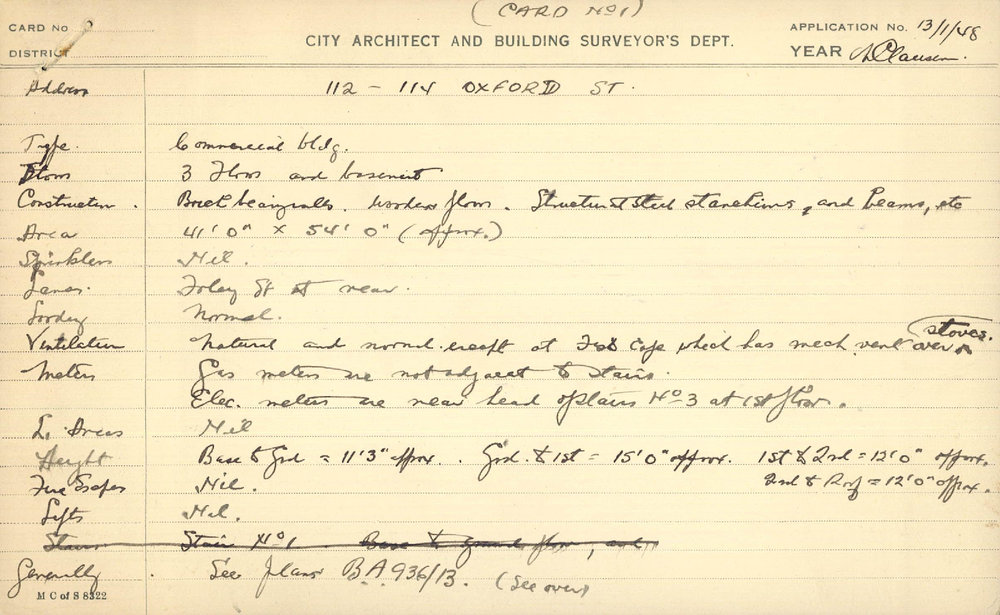 (CARD No 1)
CARD No
DISTRICT
CITY ARCHITECT AND BUILDING SURVEYOR'S DEPT.
APPLICATION No. 13/1/48
YEAR
Address 112 - 114 OXFORD ST.
Type. Commercial bldg.
Floors 3 Floors and basement
Construction. Brick bearing walls. Wooden floors. Structural steel stanchions, and beams, etc
Area 41' 0" x 54' 0" (approx.)
Sprinklers Nil.
Lanes. Foley St at rear.
Normal.
Ventilation Natural and normal except at Cafe which has mech. vent over stoves.
Meters Gas meters are not adjacent to stairs.
Elec. meters are near head of stairs No 3 at 1st floor.
L. Areas Nil
Height Base to Grd = 11'3" approx. Grd. to 1st = 15'0" approx. 1st to 2nd = 12'0" approx.
2nd to Roof = 12'0" approx.
Fire Escapes Nil.
Lifts Nil.
Stairs Stair No 1 Base to ground floor, and
Generally. See plans B.A 936/13. (See over)
M C of S 8322